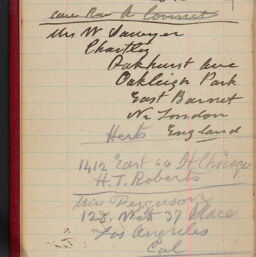 care Rev A Cornect
Mrs W Sawyer
Chartley
Oakhurst Ave
Oakleigh Park
East Barnet
No London
Herts England
1412 East 66 St Chicago
H. T. Roberts
Miss Ferguson
128. West 37 Place
Los Angeles
Cal